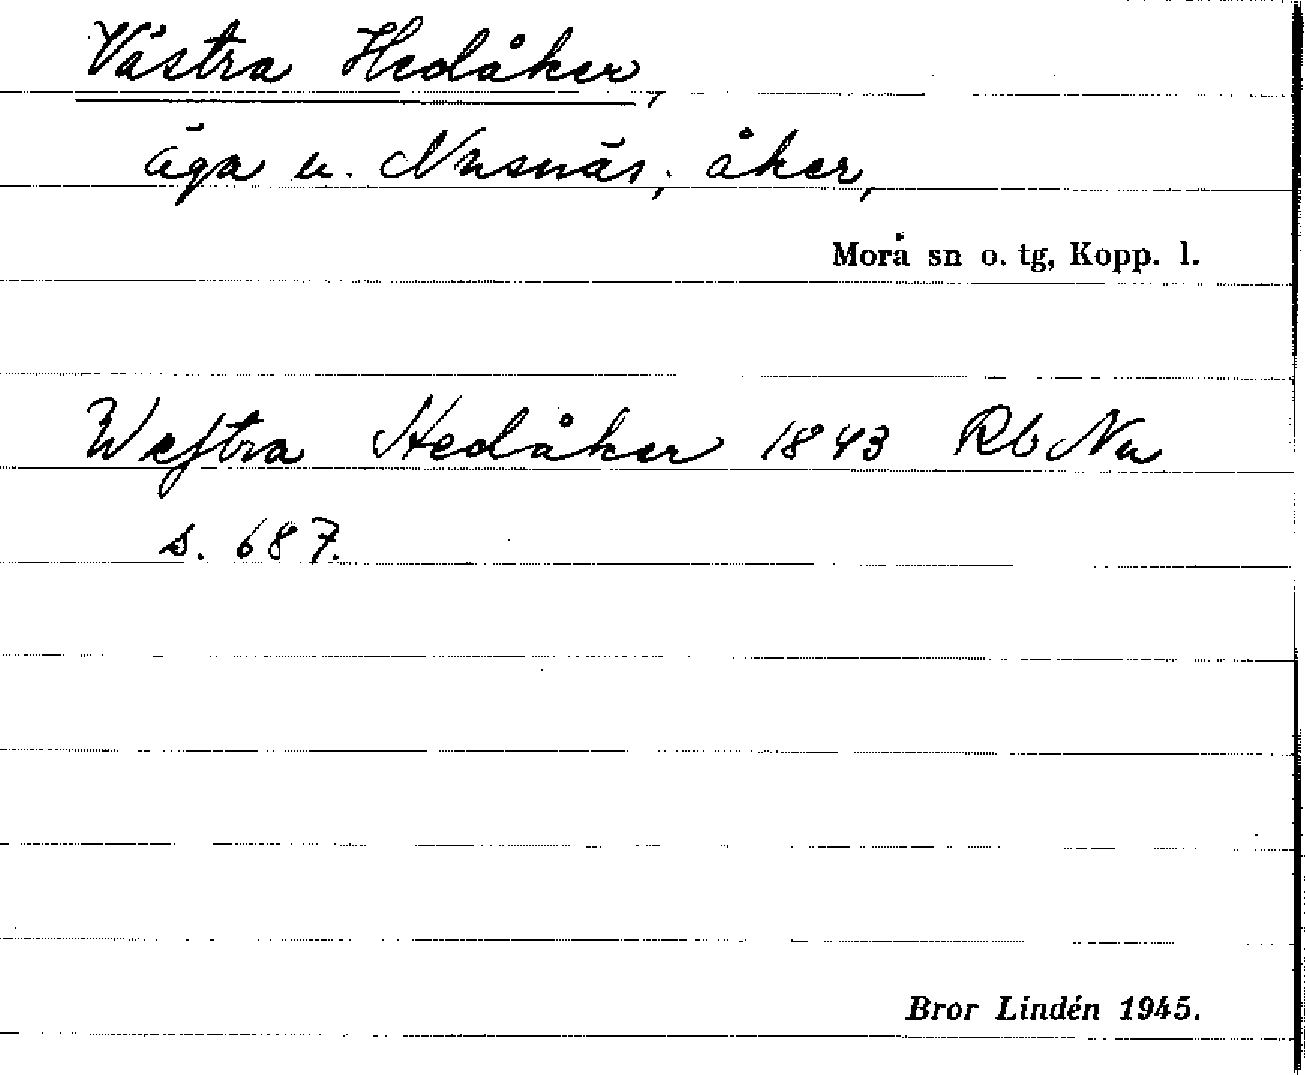 Västra Hedåker,
äga u. Nusnäs; åker,
Mora sn o. tg, Kopp. l.
Weſtra Hedåker 1843 Rb Nu
s. 687.
Bror Lindén 1945.